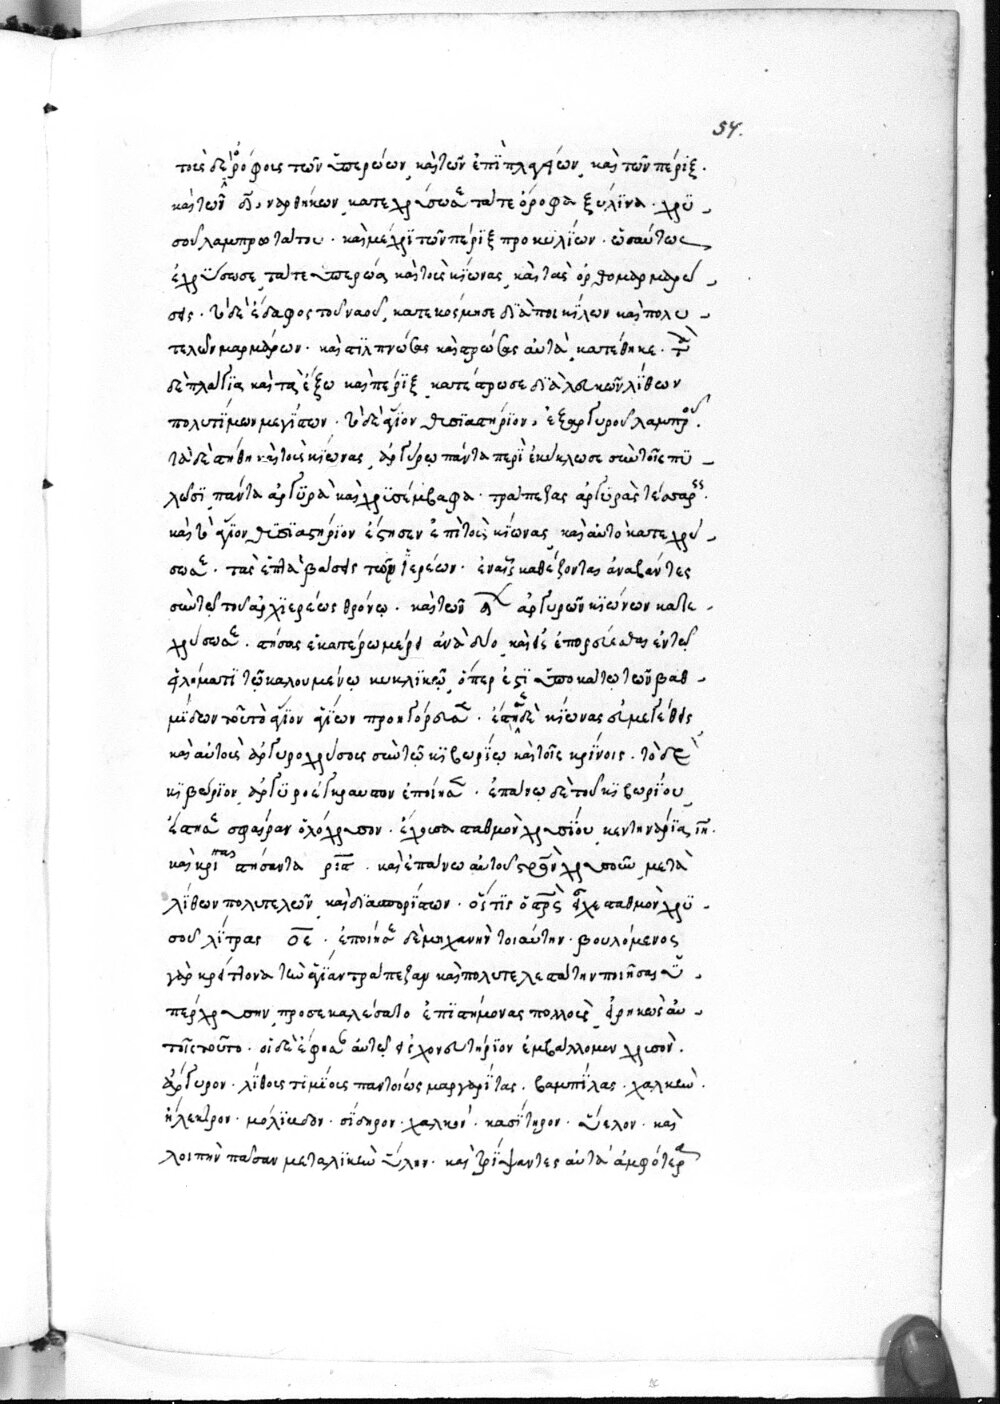 54.
τοὺς δὲ ὀρόφους τῶν ὑπερώων καὶ τῶν ἐπὶ πλαγίων, καὶ τῶν πέριξ.
καὶ τῶν νάρθήκων κατεχρύσωσε τά τε ὄροφα ξύλϊνα. χρϋ
σοῦ λαμπροτάτου. καὶ μέχρϊ τῶν πέριξ προπυλίων. ὡσαύτως
ἐχρύσωσε τά τε ὑπερῶα, καὶ τοὺς κίωνας, καὶ τὰς ὀρθομαρμαρώ
σεις. τὸ δὲ ἔδαφος τοῦ ναοῦ, κατεκόσμησε διὰ ποικίλων καὶ πολυ
τελῶν μαρμάρων. καὶ στιλπνώσας καὶ στρώσας αὐτὰ, κατέθηκε. τὰ
δὲ πλάγϊα, καὶ τὰ ἔξω καὶ πέριξ, κατέστρωσε διὰ λευκῶν λίθων
πολυτίμων μεγίστων. τὸ δὲ ἅγιον θυσιαστήριον, ἐξ ἀργύρου λαμπροῦ.
τὰ δὲ στήθη καὶ τοὺς κίωνας, ἀργύρῳ πάντα περιεκύκλωσε σὺν τοῖς πϋ
λῶσϊ, πάντα ἀργυρᾶ καὶ χρϋσέμβαφα. τραπέζας ἀργυρᾶς τέσσαρας.
καὶ τὸ ἅγιον θυσιαστήριον ἔστησεν ἐπὶ τοὺς κίωνας, καὶ αὐτὸ κατεχρύ
σωσε. τὰς ἑπτὰ βάσεις τῶν ἱερέων. ἐν αἷς καθέζονται ἀναβάντες
σὺν τῷ τοῦ ἀρχιερέως θρόνῳ. καὶ τῶν δ ἀργυρῶν κιώνων κατε
χρύσωσε. στήσας ἑκατέρω μέρει ἀνὰ δύο, καὶ ἐν τῷ
εἰλήματι τῷ καλουμένῳ κυκλίκῷ, ὅπερ ἐστὶ ὑποκάτω τῶν βαθ
μίδων τοῦτο ἅγιον ἁγίων προσηγόρευσε. ἔστησε δὲ κίωνας εὐμεγέθεις
καὶ αὐτοὺς ἀργυροχρύσους σὺν τῷ κιβωρίῳ, καὶ τοῖς κρίνοις. τὸ δὲ
κιβώριον ἀργυροέγκαυστον ἐποίησε. ἐπάνω δὲ τοῦ κιβωρίου,
ἔστησε σφαῖραν ὁλόχρυσον. ἔχουσα σταθμὸν χρυσίου κεντηνάρια ιη.
καὶ κρῖ στήσαντα ριστ. καὶ ἐπάνω αὐτοῦ σταυρὸν χρυσοῦν μετὰ
λίθων πολυτελῶν καὶ δυσπορίστων. ὅστις ὁ σταυρὸς εἶχε σταθμὸν χρϋ
σοῦ λίτρας οε. ἐποίησε δὲ μηχανὴν τοιαύτην. βουλόμενος
γὰρ κρείττονα τὴν ἁγίαν τράπεζαν καὶ πολυτελεστάτην ποιῆσαι ὑ
πὲρ χρυσὴν, προσεκαλέσατο ἐπιστήμονας πολλοὺς, εἰρηκὼς αὐ
τοῖς τοῦτο. οἱ δὲ ἔφησαν αὐτῷ, εἰς χονευτήριον ἐμβάλλομεν χρυσόν.
ἄργυρον. λίθους τιμίους παντοίως μαργαρίτας. βαμπίλας. χαλκὸν.
ἤλεκτρον. μόλϊυβδον. σίδηρον. χαλκόν. κασίτηρον. ὕελον. καὶ
λοιπὴν πᾶσαν μεταλικὴν ὕλην. καὶ τρίψαντες αὐτὰ ἀμφότερα